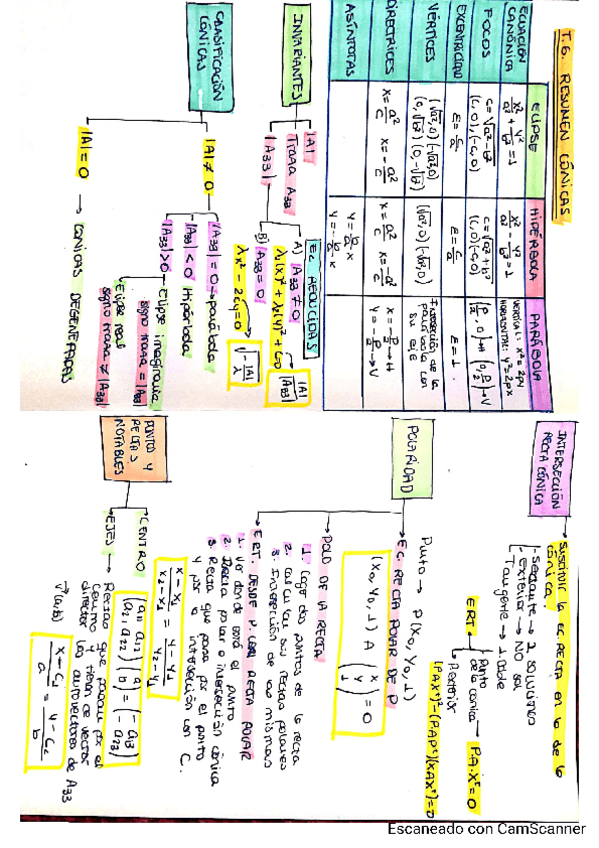 T.6. RESUMEN CÓNICAS
ELIPSE
HIPÉRBOLA
PARÁBOLA
ECUACIÓN CANÓNICA
x²/a² + y²/b² = 1
x²/a² - y²/b² = 1
VERTICAL: x² = 2py
HORIZONTAL: y² = 2px
FOCOS
c = √a² - b²
(c, 0), (-c, 0)
c = √a² + b²
(c, 0) (-c, 0)
(p/2, 0) → H (0, p/2) → V
EXCENTRICIDAD
E = c/a
E = c/a
E = 1.
VÉRTICES
(√a², 0) (-√a², 0)
(0, √b²) (0, -√b²)
(√a², 0) (-√a², 0)
Intersección de la
parábola con
su eje
DIRECTRICES
x = a²/c x = -a²/c
x = a²/c x = -a²/c
x = -p/2 → H
y = -p/2 → V
ASÍNTOTAS
y = b/a x
y = -b/a x
INVARIANTES
|A|
Traza A33
|A33|
EC REDUCIDAS
A) |A33| ≠ 0
λ1(x)² + λ2(y)² + C = 0
|A|/|A33|
B) |A33| = 0
λx² - 2cy = 0
√-|A|/λ
CLASIFICACIÓN
CÓNICAS
|A| ≠ 0
|A33| = 0 → parábola
|A33| < 0 Hipérbola
|A33| > 0 → Elipse imaginaria
signo traza = |A33|
Elipse real
signo traza ≠ |A33|
|A| = 0 → CÓNICAS DEGENERADAS
INTERSECCIÓN
RECTA CÓNICA
Sustituir la ec recta en la de la
cónica
- Secante → 2 soluciones
- exterior → NO sol
Tangente → 1. doble
ERT
Punto
de la cónica → P.A.Xᵗ = 0
P. exterior
(PAXᵗ)² - (PAPᵗ)(XAXᵗ) = 0
POLARIDAD
Punto → P(x₀, y₀, 1)
EC. RECTA POLAR DE P
(x₀, y₀, 1) A (x y 1) = 0
POLO DE LA RECTA
1. Cojo dos puntos de la recta
2. calculo sus rectas polares
3. Intersección de las mismas
ERT. DESDE P. USAR RECTA POLAR
1. Ver donde está el punto
2. Recta polar e intersección cónica
3. Recta que pasa por el punto
y por la intersección con C.
x - x1/x2 - x1 = y - y1/y2 - y1
PUNTOS Y
RECTAS
NOTABLES
CENTRO
(a11 a12 a12 a22) (a b) = (-a13 -a23)
EJES → Rectas que pasan por el
centro y tienen de vector
director los autovectores de A33
→ v(a,b)
x - c1/a = y - c2/b
Escaneado con CamScanner